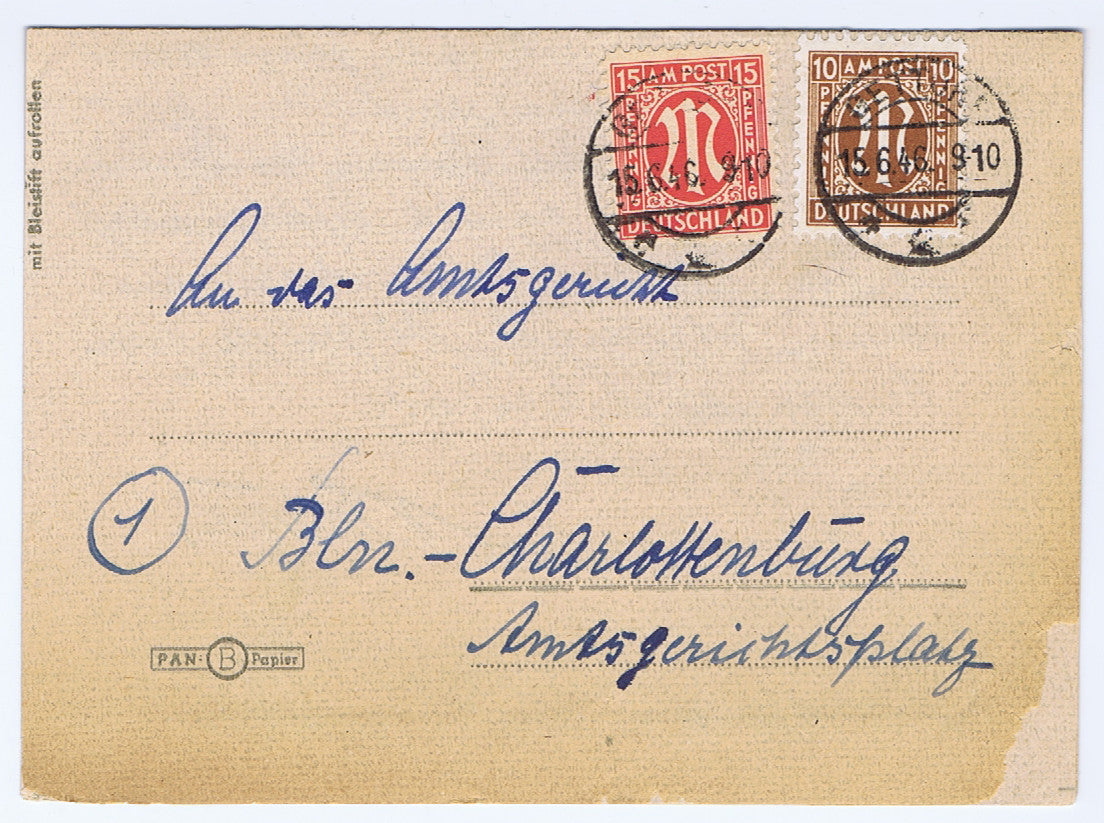 mit Bleistift aufrollen
15 AM POST 15
PFENNIG PFENNIG
DEUTSCHLAND
15.6.46. 9-10
10 AM POST 10
PFENNIG PFENNIG
DEUTSCHLAND
15.6.46. 9-10
An das Amtsgericht
1 Bln.-Charlottenburg
Amtsgerichtsplatz
PAN- B Papier